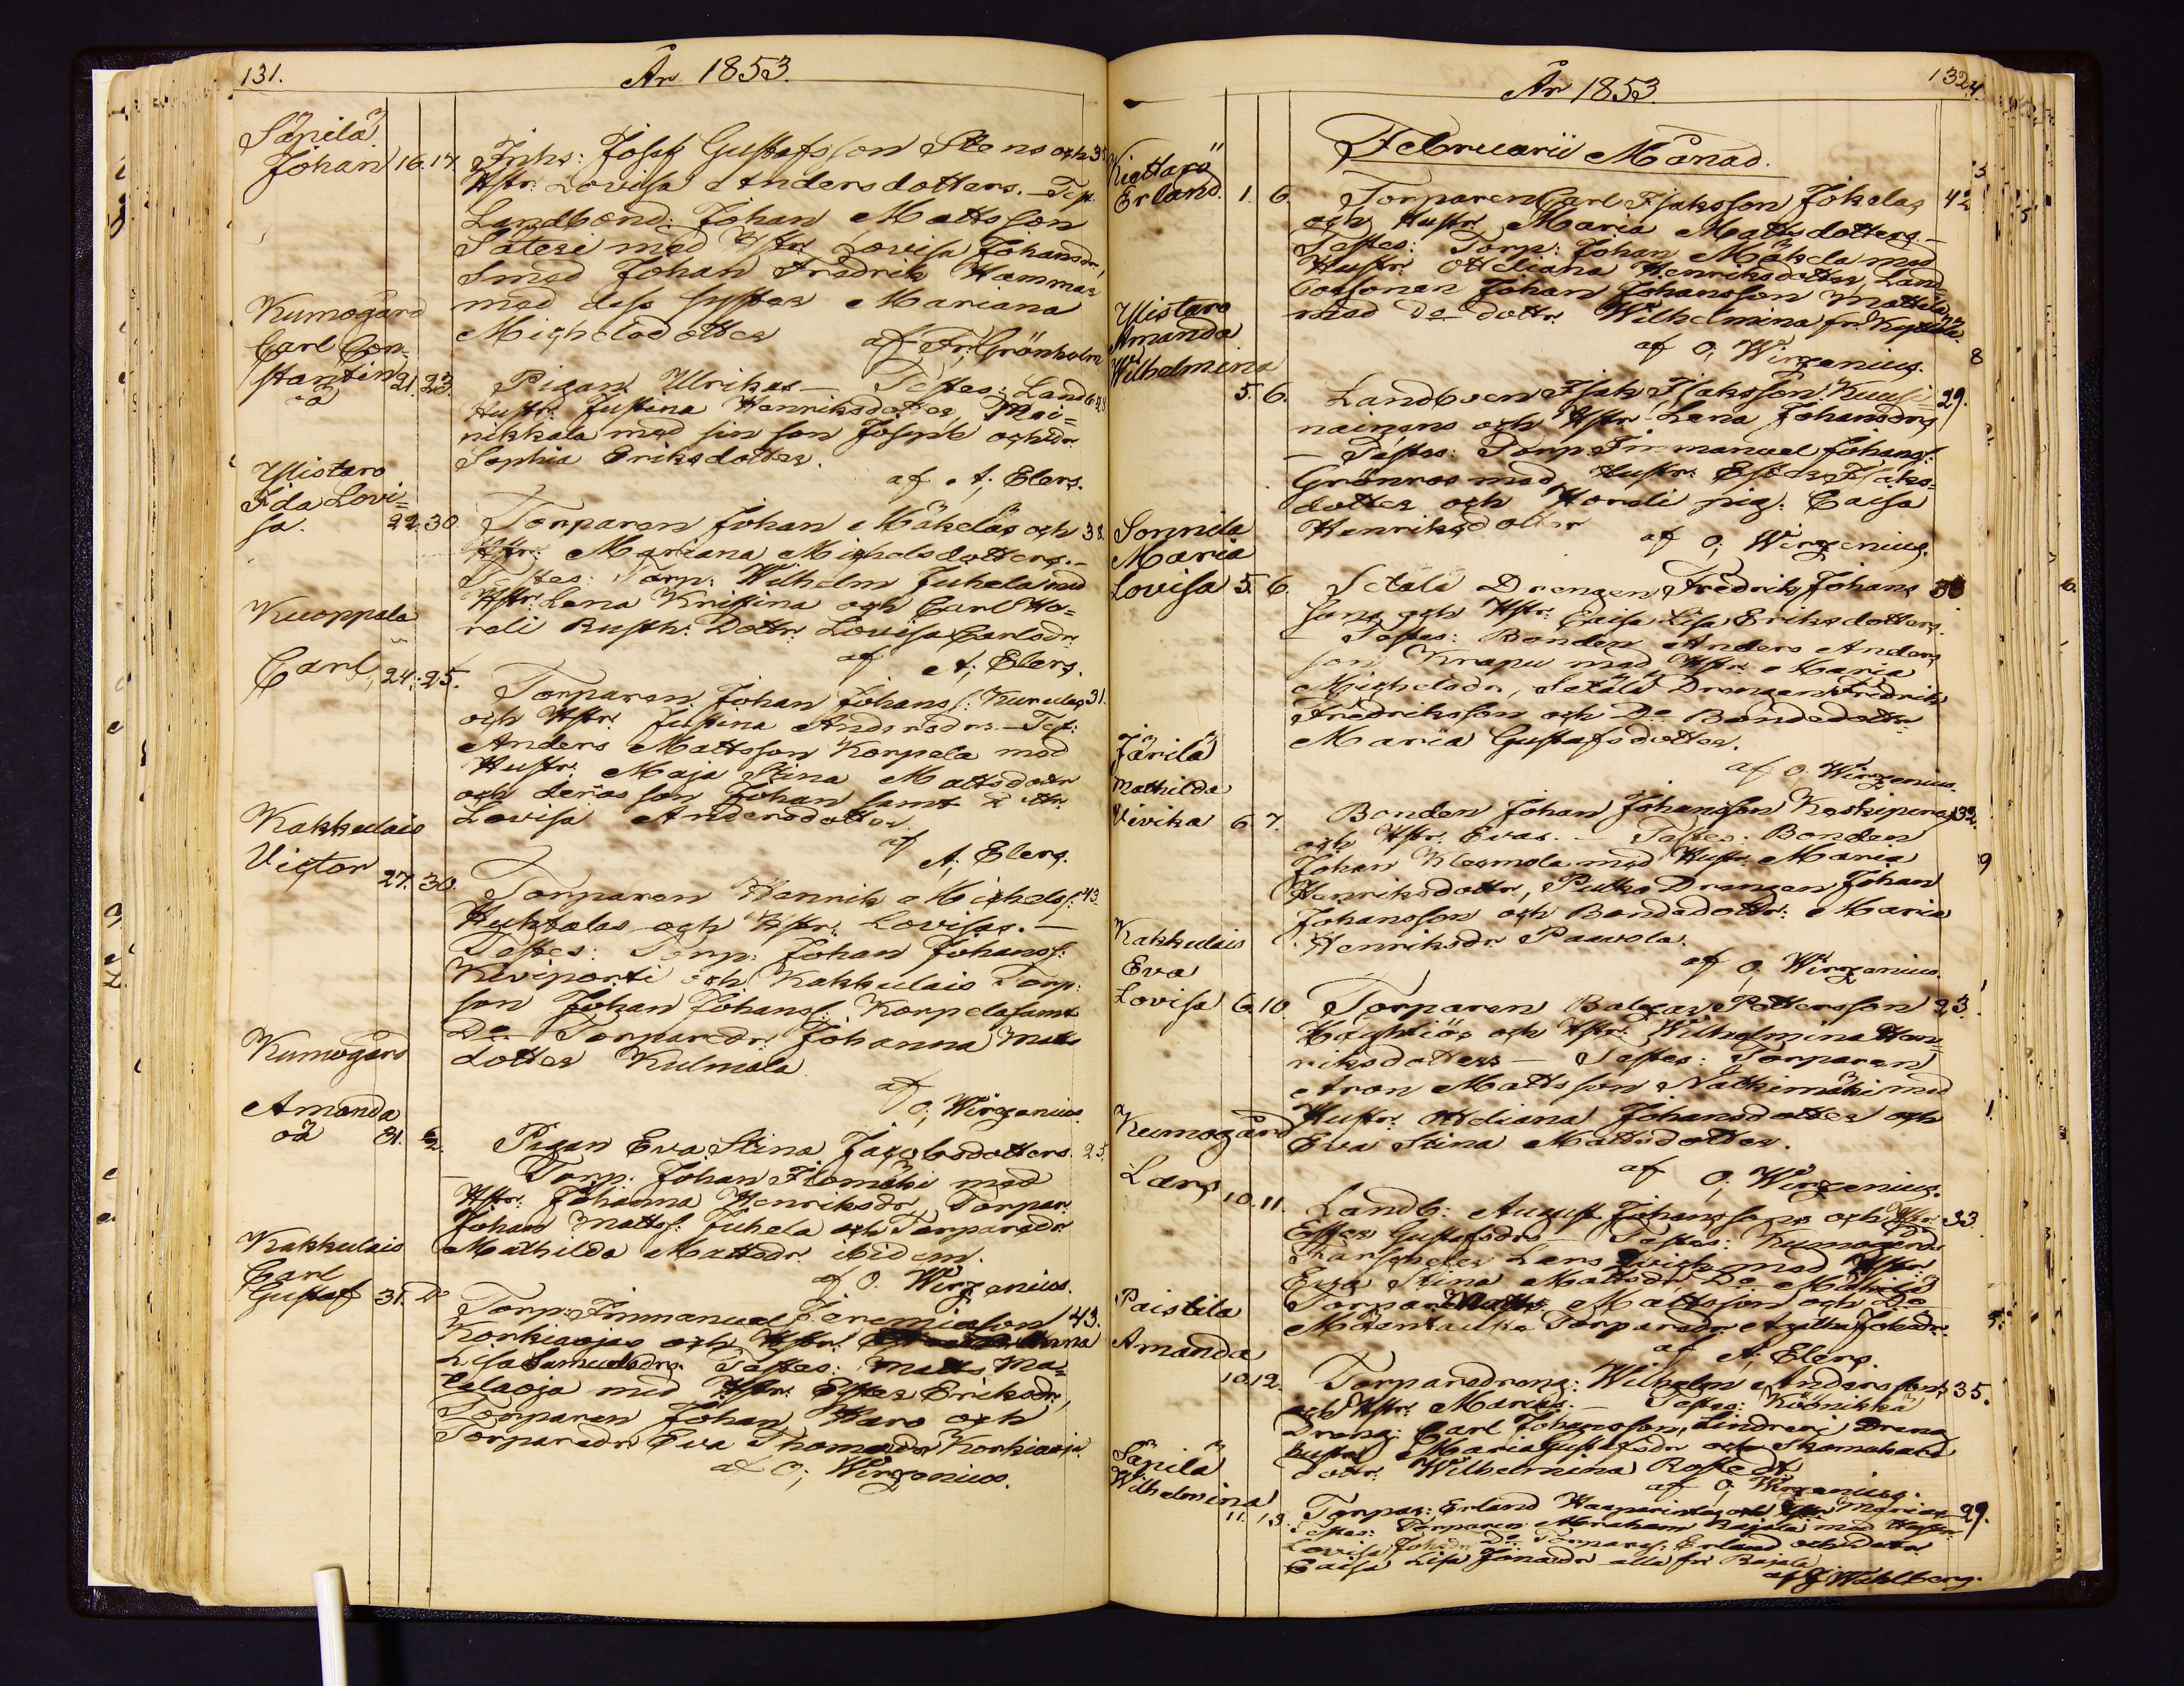 131.
År 1853.
Säpilä
Johan 16. 17. Inhs: Josef Gustafsson Stens och 35
Hstr. Lovisa Andersdotters. – Test.
Landbond: Johan Mattsson
Säteri med Hstr Lovisa Johansdr,
Smed Johan Fredrik Hammar
med dess syster Mariana
Michelsdotter
af Fr. Grönholm
Kumogård
Carl Con=
stantin 21. 23. Pigan Ulrikas – Testes: Landb
oä
Hustr. Justina Henriksdotter, Mai=
nikkala med sin son Joseph och dr
Sophia Eriksdotter.
af A; Elers.
Ylistaro
Ida Lovi=
sa. 22. 30. Torparen Johan Mäkeläs och 38.
Hstr: Mariana Michelsdotters. –
Testes: Torp: Wilhelm Juhela med
Hstr. Lena Kristina och Carl Ho=
rali Rusth: Dottr. Lovisa Carlsdr.
af A; Elers.
Kuoppala
Carl, 24. 25. Torparen Johan Johanss: 31.
och Hstr. Justina Andersdrs. – Test:
Anders Mattsson Korpela med
Hustr. Maja Stina Mattsdottr
och deras son Johan samt dottr.
Lovisa Andersdotter
af
A; Elers.
Kakkulais
Victor 27. 30. Torparen Henrik Michelss: 43.
Huhtalas och Hstr. Lovisas. –
Testes: Torp: Johan Johanss:
Kiviporti och Kakkulais Torp:
son Johan Johanss: Korpela samt
Do Torparedr. Johanna Matts
dotter Kulmala
af
O; Wirzenius.
Kumogård
Amanda
oä 31. 2. Pigan Eva Stina Jacobsdotters. 25.
– Torp: Johan Ilomäki med
Hstr. Johanna Henriksdr, Torpar:
Johan Mattss: Juhela och Torparedr
Mathilda Mattsdr ibidem.
af O. Wirzenius.
Kakkulais
Carl
Gustaf 31. Do Torp: Immanuel Jeremiasson 43.
Korkiaojas och Hstr. Anna
Lisa Samuelsdrs. Testes: Matts Ma=
talaoja med Hstr: Ester Eriksdr,
Torparen Johan Haro och
Torparedr Eva Thomasdr Korkiaoja.
af O; Wirzenius.
År 1853.
132
Februarii Månad.
Kiettarö
Erland. 1. 6. Torparen Carl Isaksson Jokelas 42
och Hustr. Maria Mattsdotters. –
Testes: Torp: Johan Mäkela med
Hustr. Heliana Henriksdotter, Land=
bosonen Johan Johansson Mattila
med Do dottr. Wilhelmina fr.
af O; Wirzenius.
Ylistaro
Amanda
Wilhelmina
5. 6. Landboen Isak Isaksson Kuusi= 29.
nainens och Hstr. Lena Johansdrs
– Testes: Torp. Immanuel Johanss:
Grönros med Hustr. Ester Isaks=
dotter och Horali pig: Caisa
Henriksdotter
af O; Wirzenius.
Sonnila
Maria
Lovisa 5. 6. Setälä Drengen Fredrik Johans
sons och Hstr. Caisa Lisa Eriksdotters.
– Testes: Bonden Anders Anders
son Krapu med Hstr. Maria
Michelsdr, Setälä Drengen Fredrik
Fredriksson och Do Bondedottr
Maria Gustafsdotter.
af O. Wirzenius.
Järilä
Mathilda
Vivika 6. 7. Bonden Johan Johansson 32.
och Hstr. Evas. – Testes: Bonden
Johan Kleemola med Hustr. Maria
Henriksdottr, Putko Drengen Johan
Johansson och Bondedottr. Maria
Henriksdr Paavola.
af O; Wirzenius.
Kakkulais
Eva
Lovisa 6. 10 Torparen Baltzar Pettersson 23.
och Hstr. Wilhelmina Hen=
riksdotters – Testes: Torparen
Aron Mattsson Nätkimäki med
Hustr. Heliana Johansdotter och
Eva Stina Mattsdotter.
af O; Wirzenius.
Kumogård
Lars 10. 11. Landb: August Johanssons och Hstr. 33.
Ester Gustafsdrs – Testes: Kumogårds
Lars med Hstr
Eva Stina Mattsdr, Do
Torpar Matts Mattsson och Do
Torparedr Agatha Johsdr.
af A; Elers.
Paistila
Amanda
10. 12. Torparedreng: Wilhelm Anderssons 35.
och Hstr. Marias. – Testes: Köönikkä
Dreng: Carl Johansson, Lindreri Dreng
hustr. Maria Gustafsdr och Skomakare
dottr. Wilhelmina Rostedt
af O; Wirzenius.
Säpilä
Wilhelmina
11. 13. Torpar: Erland och Hstr Marias 29.
Testes: Torparen Abraham Rajala med Hustr:
Lovisa Johsdr, Do Torpares: Erland och dottr
Caisa Lisa Jonasdr alla fr. Rajala
af J. Wahlberg.